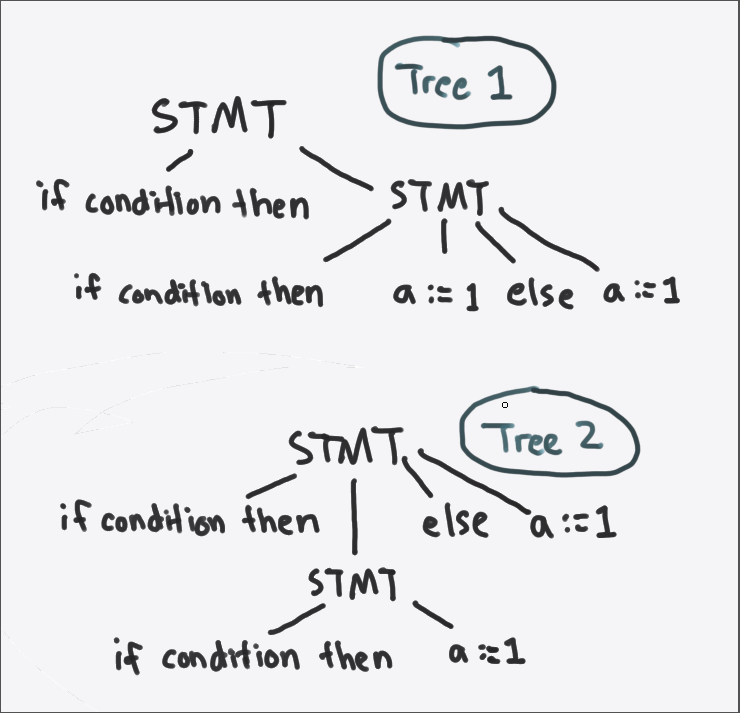 Tree 1
STMT
if condition then STMT
if condition then a := 1 else a := 1
Tree 2
STMT
if condition then else a := 1
STMT
if condition then a := 1